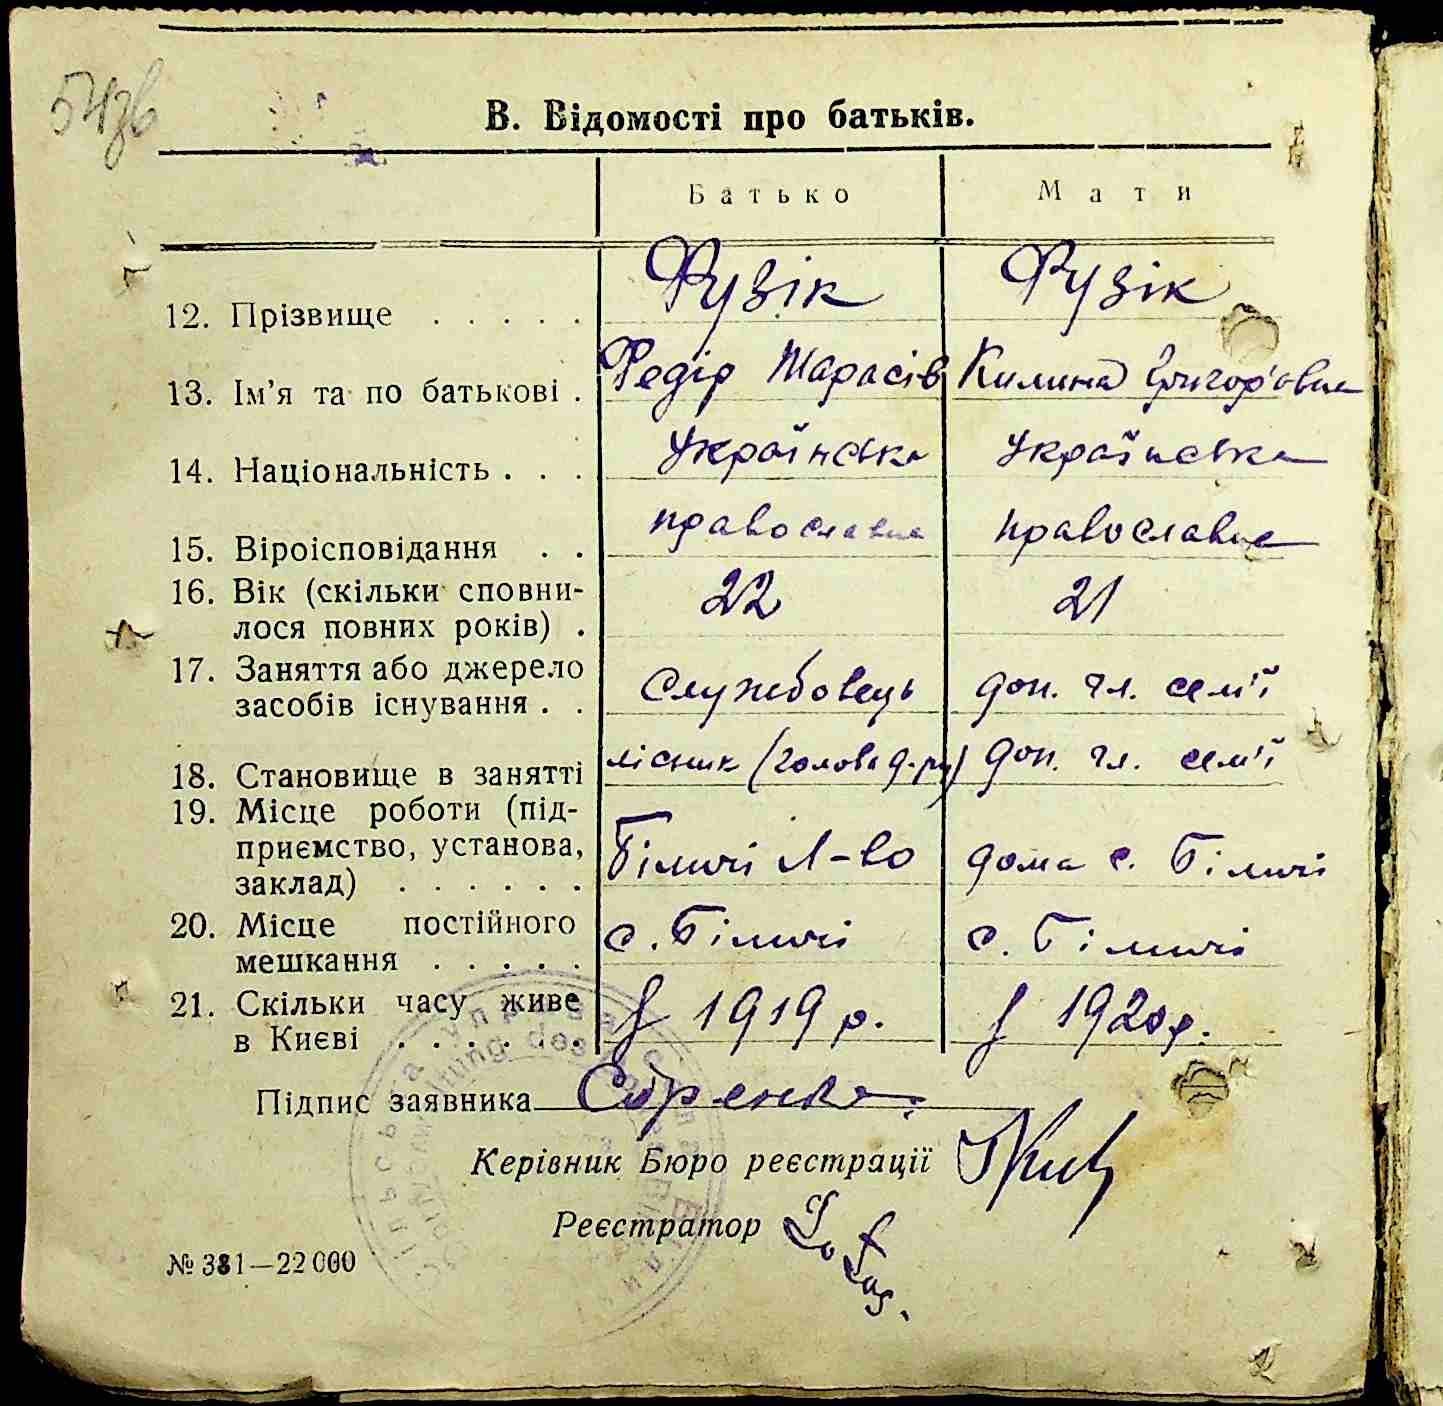 54зв
В. Відомості про батьків.
Батько Мати
12. Прізвище . . . . . Фузік Фузік
13. Ім’я та по батькові . Федір Тарасів Килина Григор'овна
14. Національність . . . Українська Українська
15. Віроісповідання . . православна православна
16. Вік (скільки сповни-
лося повних років) . 22 21
17. Заняття або джерело
засобів існування . . Службовець доп. гл. сем'ї
18. Становище в занятті лісник (голова д-ру) доп. гл. сем'ї
19. Місце роботи (під-
приємство, установа,
заклад) . . . . . . Біличі л-во дома с. Біличі
20. Місце постійного
мешкання . . . . . с. Біличі с. Біличі
21. Скільки часу живе
в Києві . . . . . . з 1919 р. з 1920 р.
Підпис заявника
Керівник Бюро реєстрації
Реєстратор
№ 381—22 000